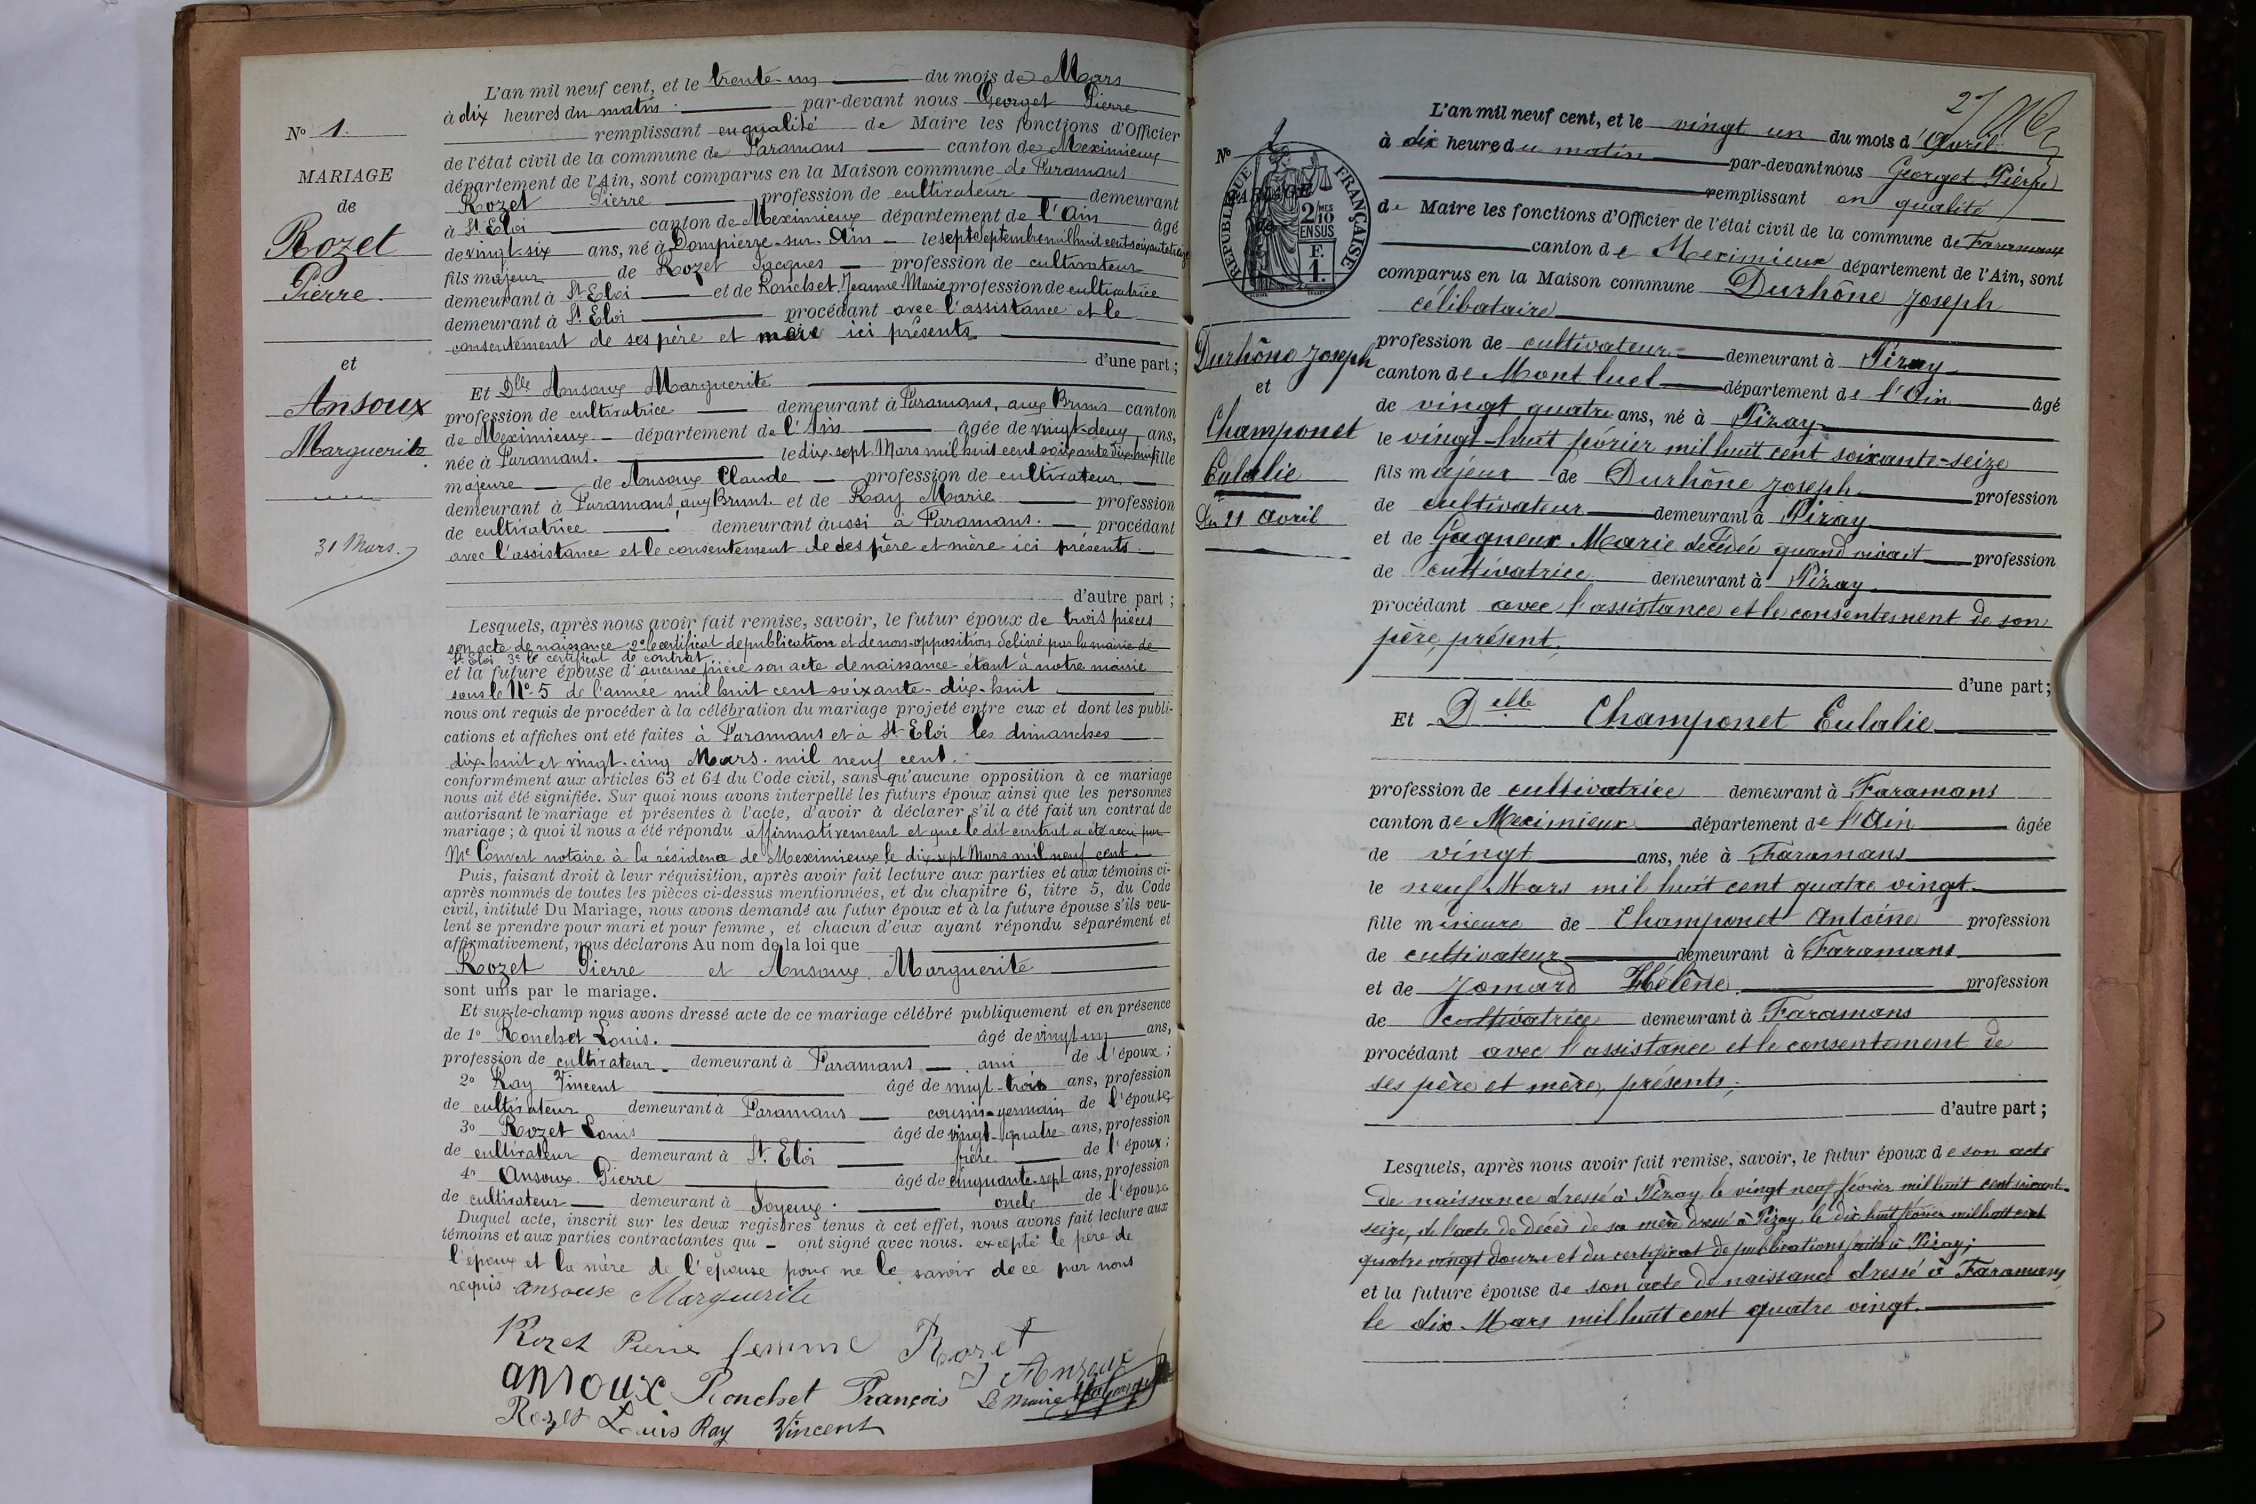 No 1.
MARIAGE
de
Rozet
Pierre.
et
Ansoux
Marguerite
31 Mars.
L'an mil neuf cent, et le trente-un du mois de Mars
à dix heures du matin. par-devant nous Georget Pierre
remplissant en qualité de Maire les fonctions d'Officier
de l'état civil de la commune de Faramans canton de Meximieux
département de l'Ain, sont comparus en la Maison commune de Faramans
Rozet Pierre profession de cultivateur demeurant
à St Eloi canton de Meximieux département de l'Ain âgé
de vingt-six ans, né à Dompierre-sur-Ain le sept Septembre mil huit cent soixante treize
fils majeur de Rozet Jacques profession de cultivateur
demeurant à St Eloi et de Ronchet Jeanne Marie profession de cultivatrice
demeurant à St Eloi procédant avec l'assistance et le
consentement de ses père et mère ici présents
d'une part ;
Et Dlle Ansoux Marguerite
profession de cultivatrice demeurant à Faramans, aux Bruns canton
de Meximieux département de l'Ain âgée de vingt-deux ans,
née à Faramans. le dix-sept Mars mil huit cent soixante dix-huit fille
majeure de Ansoux Claude profession de cultivateur
demeurant à Faramans, aux Bruns et de Ray Marie profession
de cultivatrice demeurant aussi à Faramans. procédant
avec l'assistance et le consentement de ses père et mère ici présents.
d'autre part ;
Lesquels, après nous avoir fait remise, savoir, le futur époux de trois pièces
son acte de naissance 2° le certificat de publication et de non-opposition délivré par la mairie de
St Eloi 3° le certificat de contrat
et la future épouse d'aucune pièce son acte de naissance étant à notre mairie
sous le No 5 de l'année mil huit cent soixante-dix-huit
nous ont requis de procéder à la célébration du mariage projeté entre eux et dont les publi-
cations et affiches ont eté faites à Faramans et à St Eloi les dimanches
dix-huit et vingt-cinq Mars. mil neuf cent.
conformément aux articles 63 et 64 du Code civil, sans qu'aucune opposition à ce mariage
nous ait été signifiée. Sur quoi nous avons interpellé les futurs époux ainsi que les personnes
autorisant le mariage et présentes à l'acte, d'avoir à déclarer s'il a été fait un contrat de
mariage ; à quoi il nous a été répondu affirmativement et que le dit contrat a été reçu par
Me Convert notaire à la résidence de Meximieux le dix-sept Mars mil neuf cent.
Puis, faisant droit à leur réquisition, après avoir fait lecture aux parties et aux témoins ci-
après nommés de toutes les pièces ci-dessus mentionnées, et du chapitre 6, titre 5, du Code
civil, intitulé Du Mariage, nous avons demandé au futur époux et à la future épouse s'ils veu-
lent se prendre pour mari et pour femme, et chacun d'eux ayant répondu séparément et
affirmativement, nous déclarons Au nom de la loi que
Rozet Pierre et Ansoux Marguerite
sont unis par le mariage.
Et sur-le-champ nous avons dressé acte de ce mariage célébré publiquement et en présence
de 1° Ronchet Louis. âgé de vingt-un ans,
profession de cultivateur demeurant à Faramans ami de l'époux ;
2° Ray Vincent âgé de vingt-trois ans, profession
de cultivateur demeurant à Faramans cousin-germain de l'épouse,
3° Rozet Louis âgé de vingt-quatre ans, profession
de cultivateur demeurant à St Eloi frère de l'époux ;
4° Ansoux Pierre âgé de cinquante-sept ans, profession
de cultivateur demeurant à Joyeux. oncle de l'épouse
Duquel acte, inscrit sur les deux registres tenus à cet effet, nous avons fait lecture aux
témoins et aux parties contractantes qui ont signé avec nous. excepté le père de
l'époux et la mère de l'épouse pour ne le savoir de ce par nous
requis ansouse Marguerite
Rozet Pierre femme Rozet
ansoux Ronchet François J Ansoux
Le Maire
Rozet Louis Ray Vincent
27
No 2
RÉPUBLIQUE FRANÇAISE
2/10MES
EN SUS
F.
1.
MARIAGE
de
Durhône Joseph
et
Champonet
Eulalie
Du 21 Avril
L'an mil neuf cent, et le vingt un du mois d'Avril
à dix heures du matin par-devant nous Georget Pierre
remplissant en qualité
de Maire les fonctions d'Officier de l'état civil de la commune de Faramans
canton de Meximieux département de l'Ain, sont
comparus en la Maison commune Durhône Joseph
célibataire
profession de cultivateur demeurant à Pizay
canton de Montluel département de l'Ain âgé
de vingt quatre ans, né à Pizay
le vingt-huit février mil huit cent soixante-seize
fils majeur de Durhône Joseph profession
de cultivateur demeurant à Pizay
et de Gagneux Marie décédée quand vivait profession
de cultivatrice demeurant à Pizay
procédant avec l'assistance et le consentement de son
père, présent.
d'une part ;
Et Delle Champonet Eulalie
profession de cultivatrice demeurant à Faramans
canton de Meximieux département de l'Ain âgée
de vingt ans, née à Faramans
le neuf Mars mil huit cent quatre vingt.
fille mineure de Champonet Antoine profession
de cultivateur demeurant à Faramans
et de Jomard Hélène. profession
de cultivatrice demeurant à Faramans
procédant avec l'assistance et le consentement de
ses père et mère, présents,
d'autre part ;
Lesquels, après nous avoir fait remise, savoir, le futur époux de son acte
de naissance dressé à Pizay le vingt neuf février mil huit cent soixante-
seize, de l'acte de décès de sa mère dressé à Pizay le dix huit février mil huit cent
quatre vingt douze et du certificat de publications faits à Pizay ;
et la future épouse de son acte de naissance dressé à Faramans
le dix Mars mil huit cent quatre vingt.